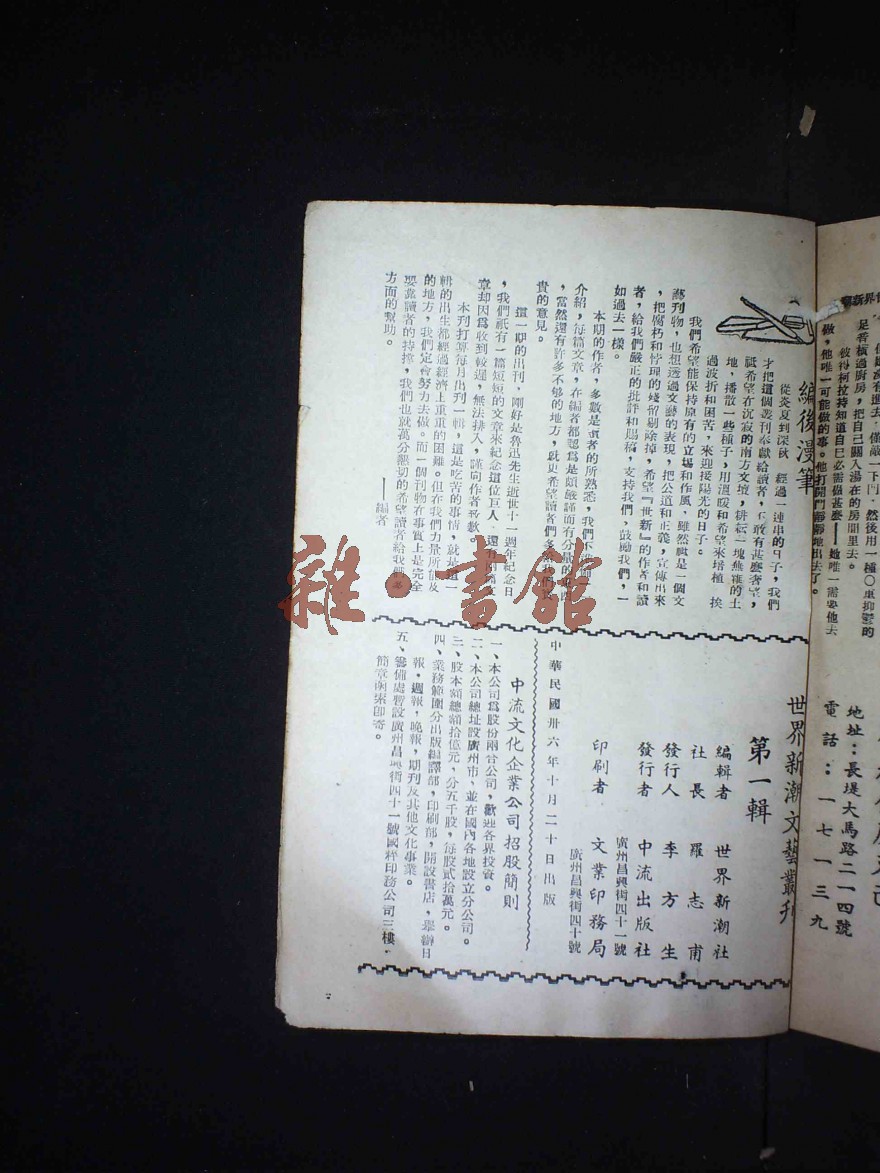 編後漫筆
從炎夏到深秋　經過一連串的日子，我們
才把這個叢刊奉獻給讀者，不敢有甚麽奢望，
祗希望在沉寂的南方文壇，耕耘一塊無雜的土
地，播散一些種子，用溫暖和希望來培植　挨
過波折和困苦，來迎接陽光的日子。
我們希望能保持原有的立場和作風，雖然祗是一個文
藝刊物，也想透過文藝的表現，把公道和正義，宣傳出來
，把腐朽和悖理的殘留剔除掉，希望『世新』的作者和讀
者，給我們嚴正的批評和賜稿，支持我們，鼓勵我們，一
如過去一樣。
本期的作者，多數是讀者的所熟悉，我們不準備
介紹，每篇文章，在編者都認為是頗嚴謹而有分量的
，當然還有許多不够的地方，就更希望讀者們多
貴的意見。
這一期的出刊，剛好是魯迅先生逝世十一週年紀念日
，我們祗有一篇短短的文章來紀念這位巨人，還有
章却因為收到較遲，無法排入，謹向作者致歉。
本刊打算每月出刊一輯，這是吃苦的事情，就是這一
輯的出生都經過經濟上重重的困難。但在我們力量所能及
的地方，我們定會努力去做。而一個刊物在事質上是完全
要靠讀者的持撐，我們也就萬分懇切的希望讀者給我們
方面的幫助。
——編者
世界新潮文藝叢刊
第一輯
編輯者　世界新潮社
社長　羅志甫
發行人　李方生
發行者　中流出版社
廣州昌興街四十一號
印刷者　文業印務局
廣州昌興街四十號
中華民國卅六年十月二十日出版
中流文化企業公司招股簡則
一、本公司為股份兩合公司，歡迎各界投資。
二、本公司總址設廣州市，並在國內各地設立分公司。
三、股本額總額拾億元，分五千股，每股貳拾萬元。
四、業務範圍分出版編譯部，印刷部，開設書店，舉辦日
報，週報，晚報，期刊及其他文化事業。
五、籌備處暫設廣州昌興街四十一號國粹印務公司三樓，
簡章函索即寄。
足音橫過廚房，把自己關入湯在的房間里去。
彼得柯拉持知道自己必需做甚麽——她唯一需要他去
做，他唯一可能做的事。他打開門靜靜地出去了。
地址：長堤大馬路二一四號
電話：一七一三九
雜·書館